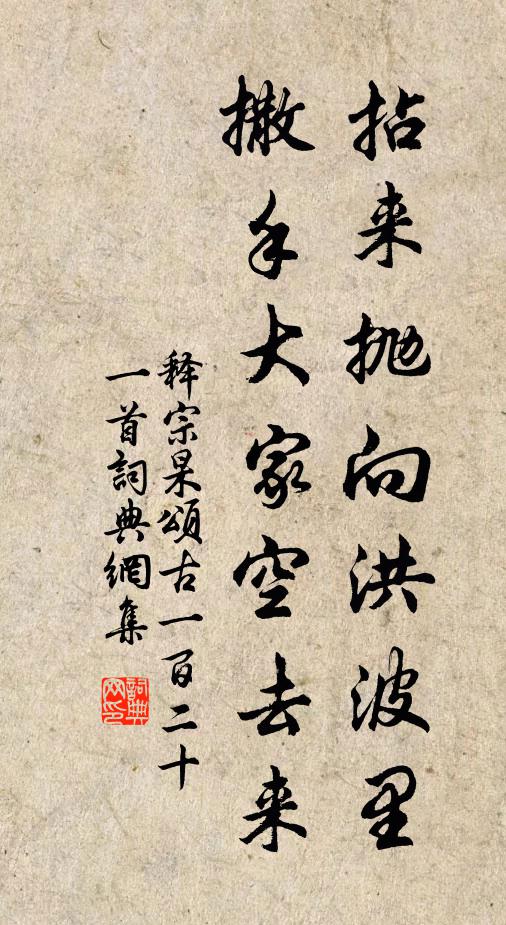 拈来抛向洪波里
撒手大家空去来
释宗杲頌古一百二十
一首詞典網集
詞典網印